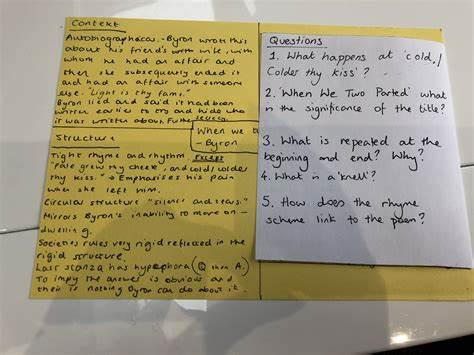 Context
Autobiographical - Byron wrote this
about his friend's wife, with
whom he had an affair and
then she subsequently ended it
and had an affair with someone
else. "Light is thy fame."
Byron lied and said it had been
written earlier to try and hide who
it was written about. Further secrecy.
When we t
- Byron
Structure
Tight rhyme and rhythm. Except
"Pale grew thy cheek, and cold, colder
thy kiss." → Emphasises his pain
when she left him.
Circular structure "silence and tears."
Mirrors Byron's inability to move on -
dwelling.
Societies rules very rigid reflected in the
rigid structure.
Last stanza has hypophora (Q then A.)
To imply the answer is obvious and
their is nothing Byron can do about it.
Questions
1. What happens at 'cold,/
Colder thy kiss'?
2. 'When We Two Parted' what
is the significance of the title?
3. What is repeated at the
beginning and end? Why?
4. What is a 'knell'?
5. How does the rhyme
scheme link to the poem?